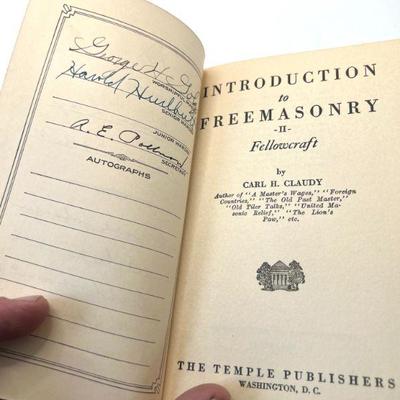 George H.
WORSHIPFUL
Harold
SENIOR
JUNIOR
A. E.
SECRETARY
AUTOGRAPHS
INTRODUCTION
to
FREEMASONRY
-II-
Fellowcraft
by
CARL H. CLAUDY
Author of "A Master's Wages," "Foreign
Countries," "The Old Past Master,"
"Old Tiler Talks," "United Ma-
sonic Relief," "The Lion's
Paw," etc.
THE TEMPLE PUBLISHERS
WASHINGTON, D. C.